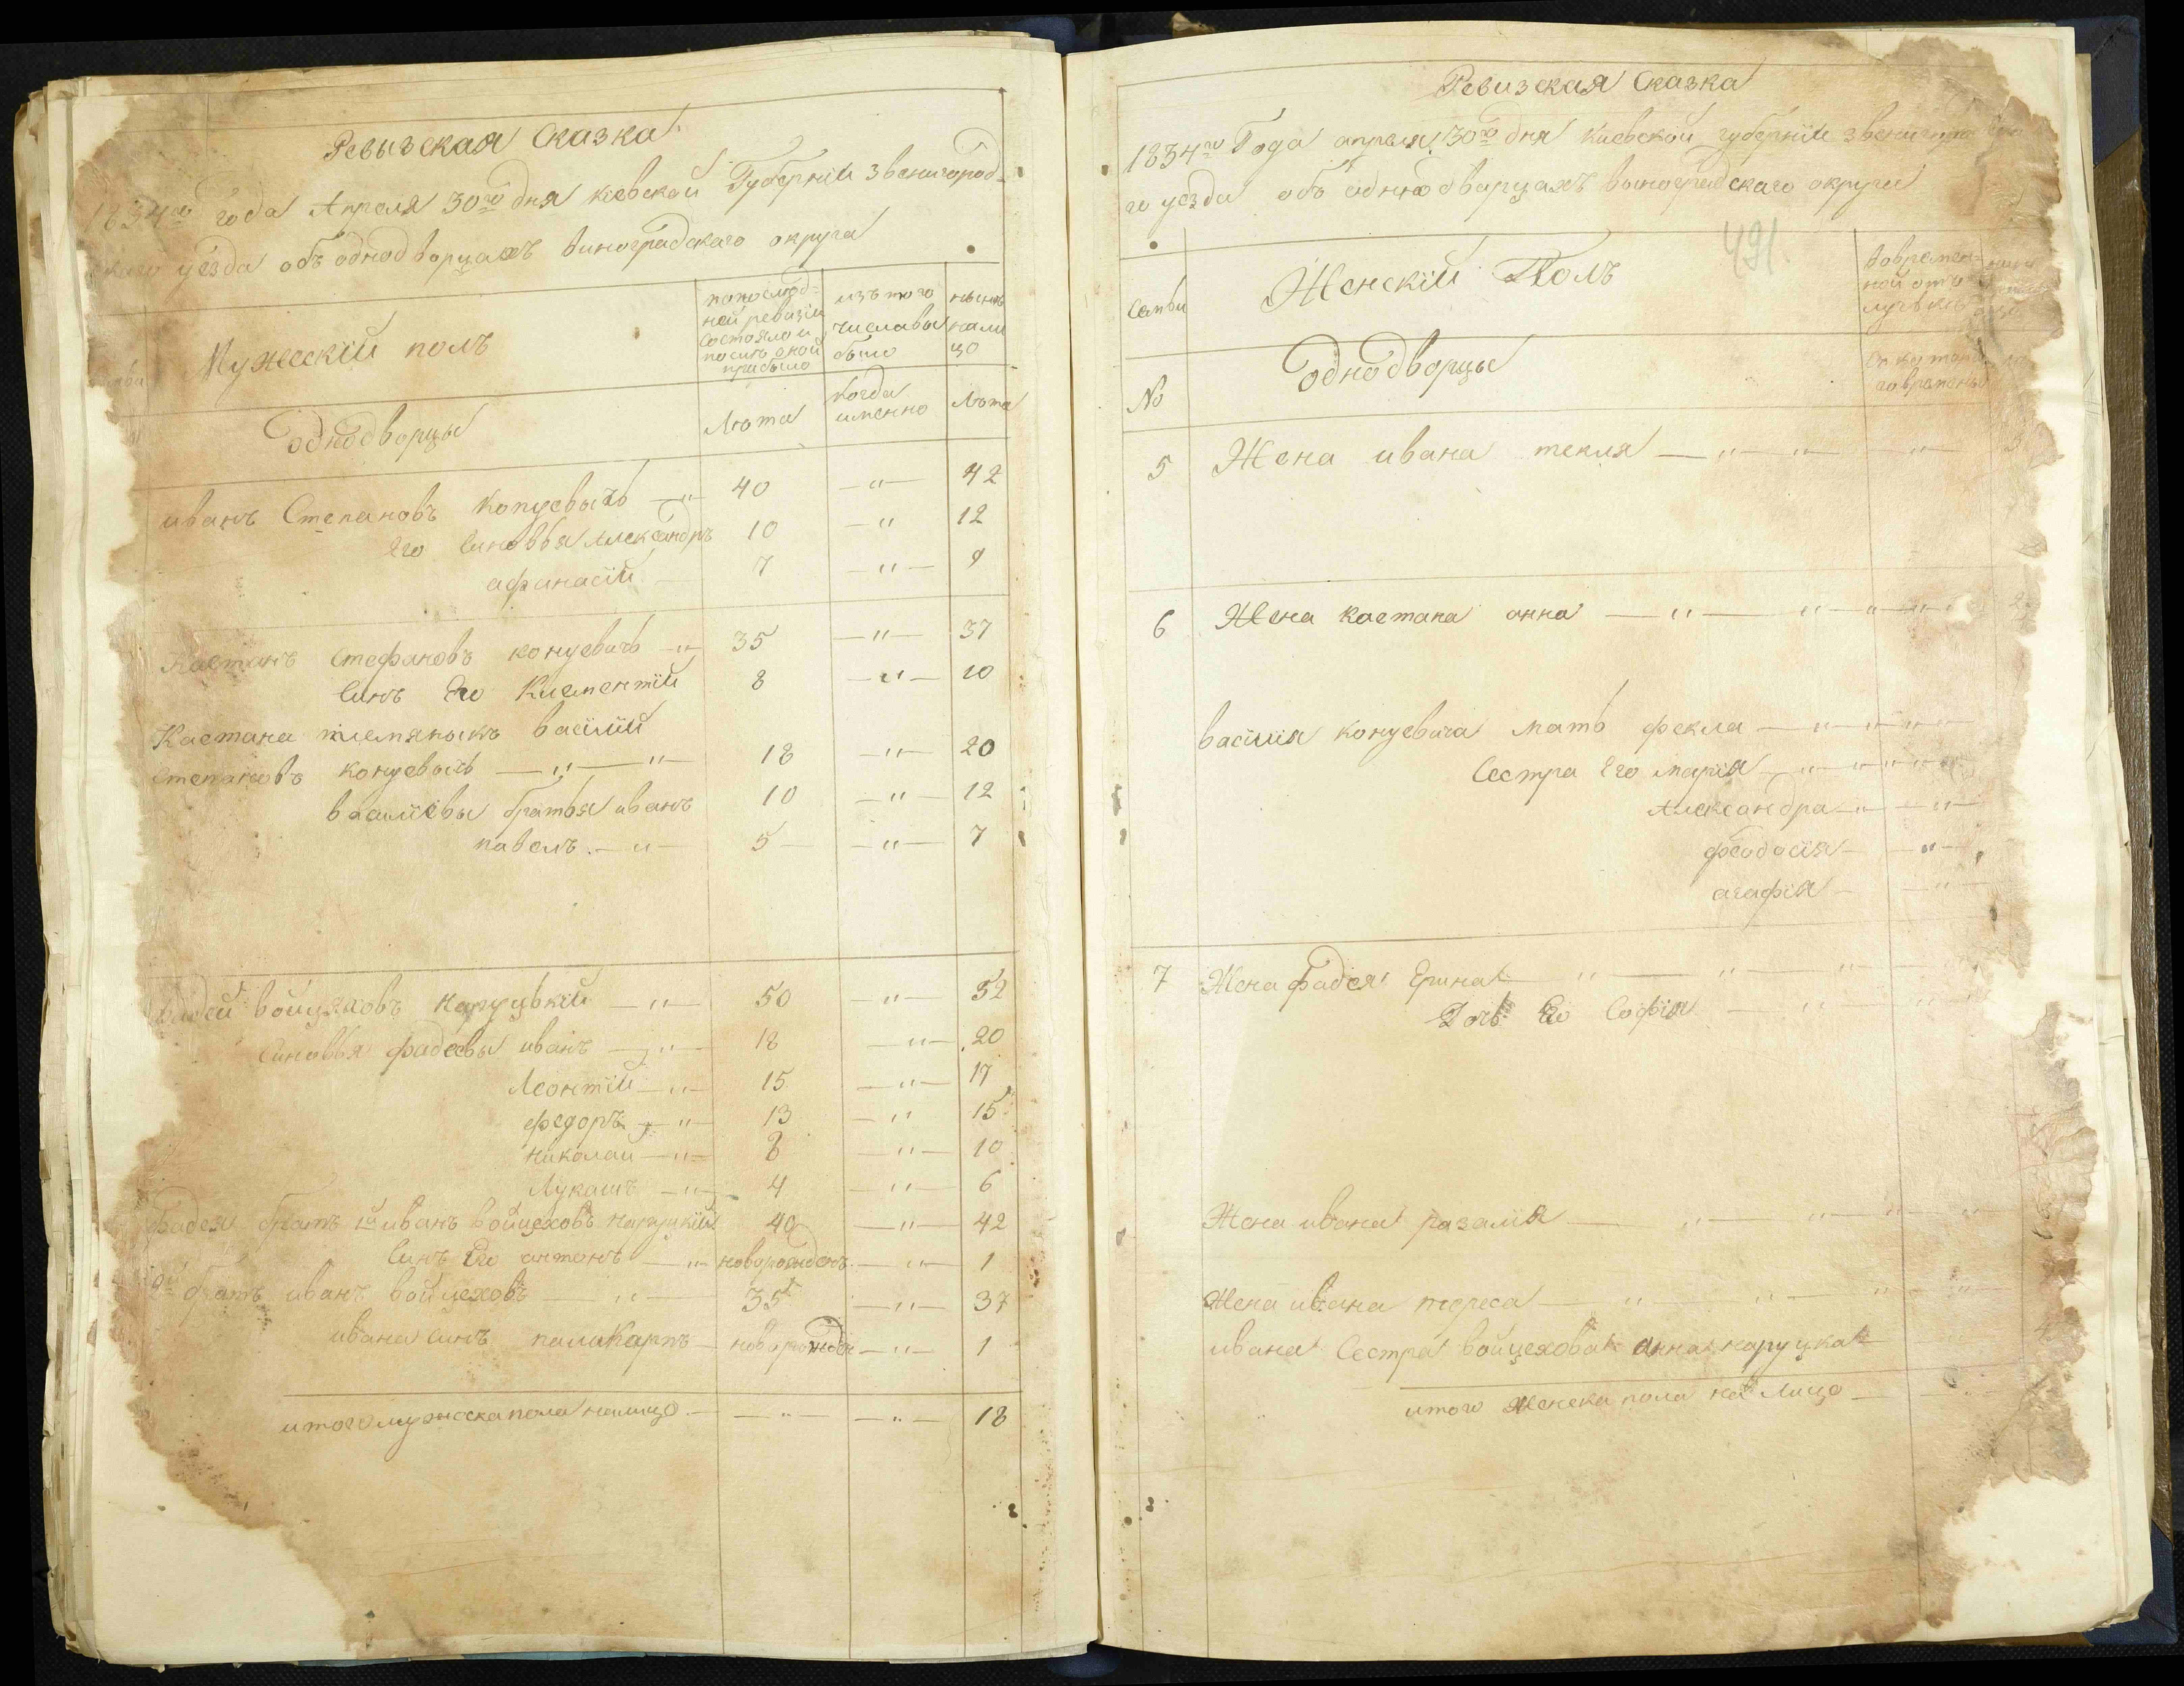 Ревызская Сказка
1834го года Апреля 30го дня Кіевской Губерніи Звенигород-
скаго уезда объ однодворцахъ Виноградскаго округа
Мужескій полъ
попослед-
ней ревизіи
состояло и
после оной
прибыло
изъ того
числа вы
было
ныне
нали
цо
Однодворцы
Лета
когда
именно
Лета
иванъ Степановъ Концевычъ 40 42
Его Синовья Александръ 10 12
афанасій 7 9
Каетанъ Стефановъ концевичъ 35 37
Синъ Его Климентій 8 10
Каетана племяныкъ василій
степановъ концевычъ 18 20
василіевы братья иванъ 10 12
павелъ 5 7
фадей войцяховъ наруцькій 50 52
синовья фадеевы иванъ 18 20
Леонтій 15 17
федоръ 13 15
николай 8 10
Лукашъ 4 6
Фадея братъ 1й иванъ войцеховъ наруцкій 40 42
Синъ Его антонъ новорожденъ 1
2й братъ иванъ войцеховъ 35 37
ивана синъ паликарпъ новорожден 1
итого мужеска пола налицо 18
Ревизская Сказка
1834го Года апреля 30го дня Киевской губерніи звенигород
го уезда объ однодворцахъ выноградскаго округи
491
Семьи
Женскій Полъ
Вовремен-
ной отъ
лучьке
№
Однодворцы
Съ котора
говремены
5 Жена ивана текля
6 Жена каетана анна
василія концевича мать фекла
Сестра Его марія
Александра
феодосія
агафія
7 Жена фадея Ерина
Дочь Его Софія
Жена ивана разалія
Жена ивана тереса
ивана Сестра войцехова анна наруцка
итого женска пола на Лицо